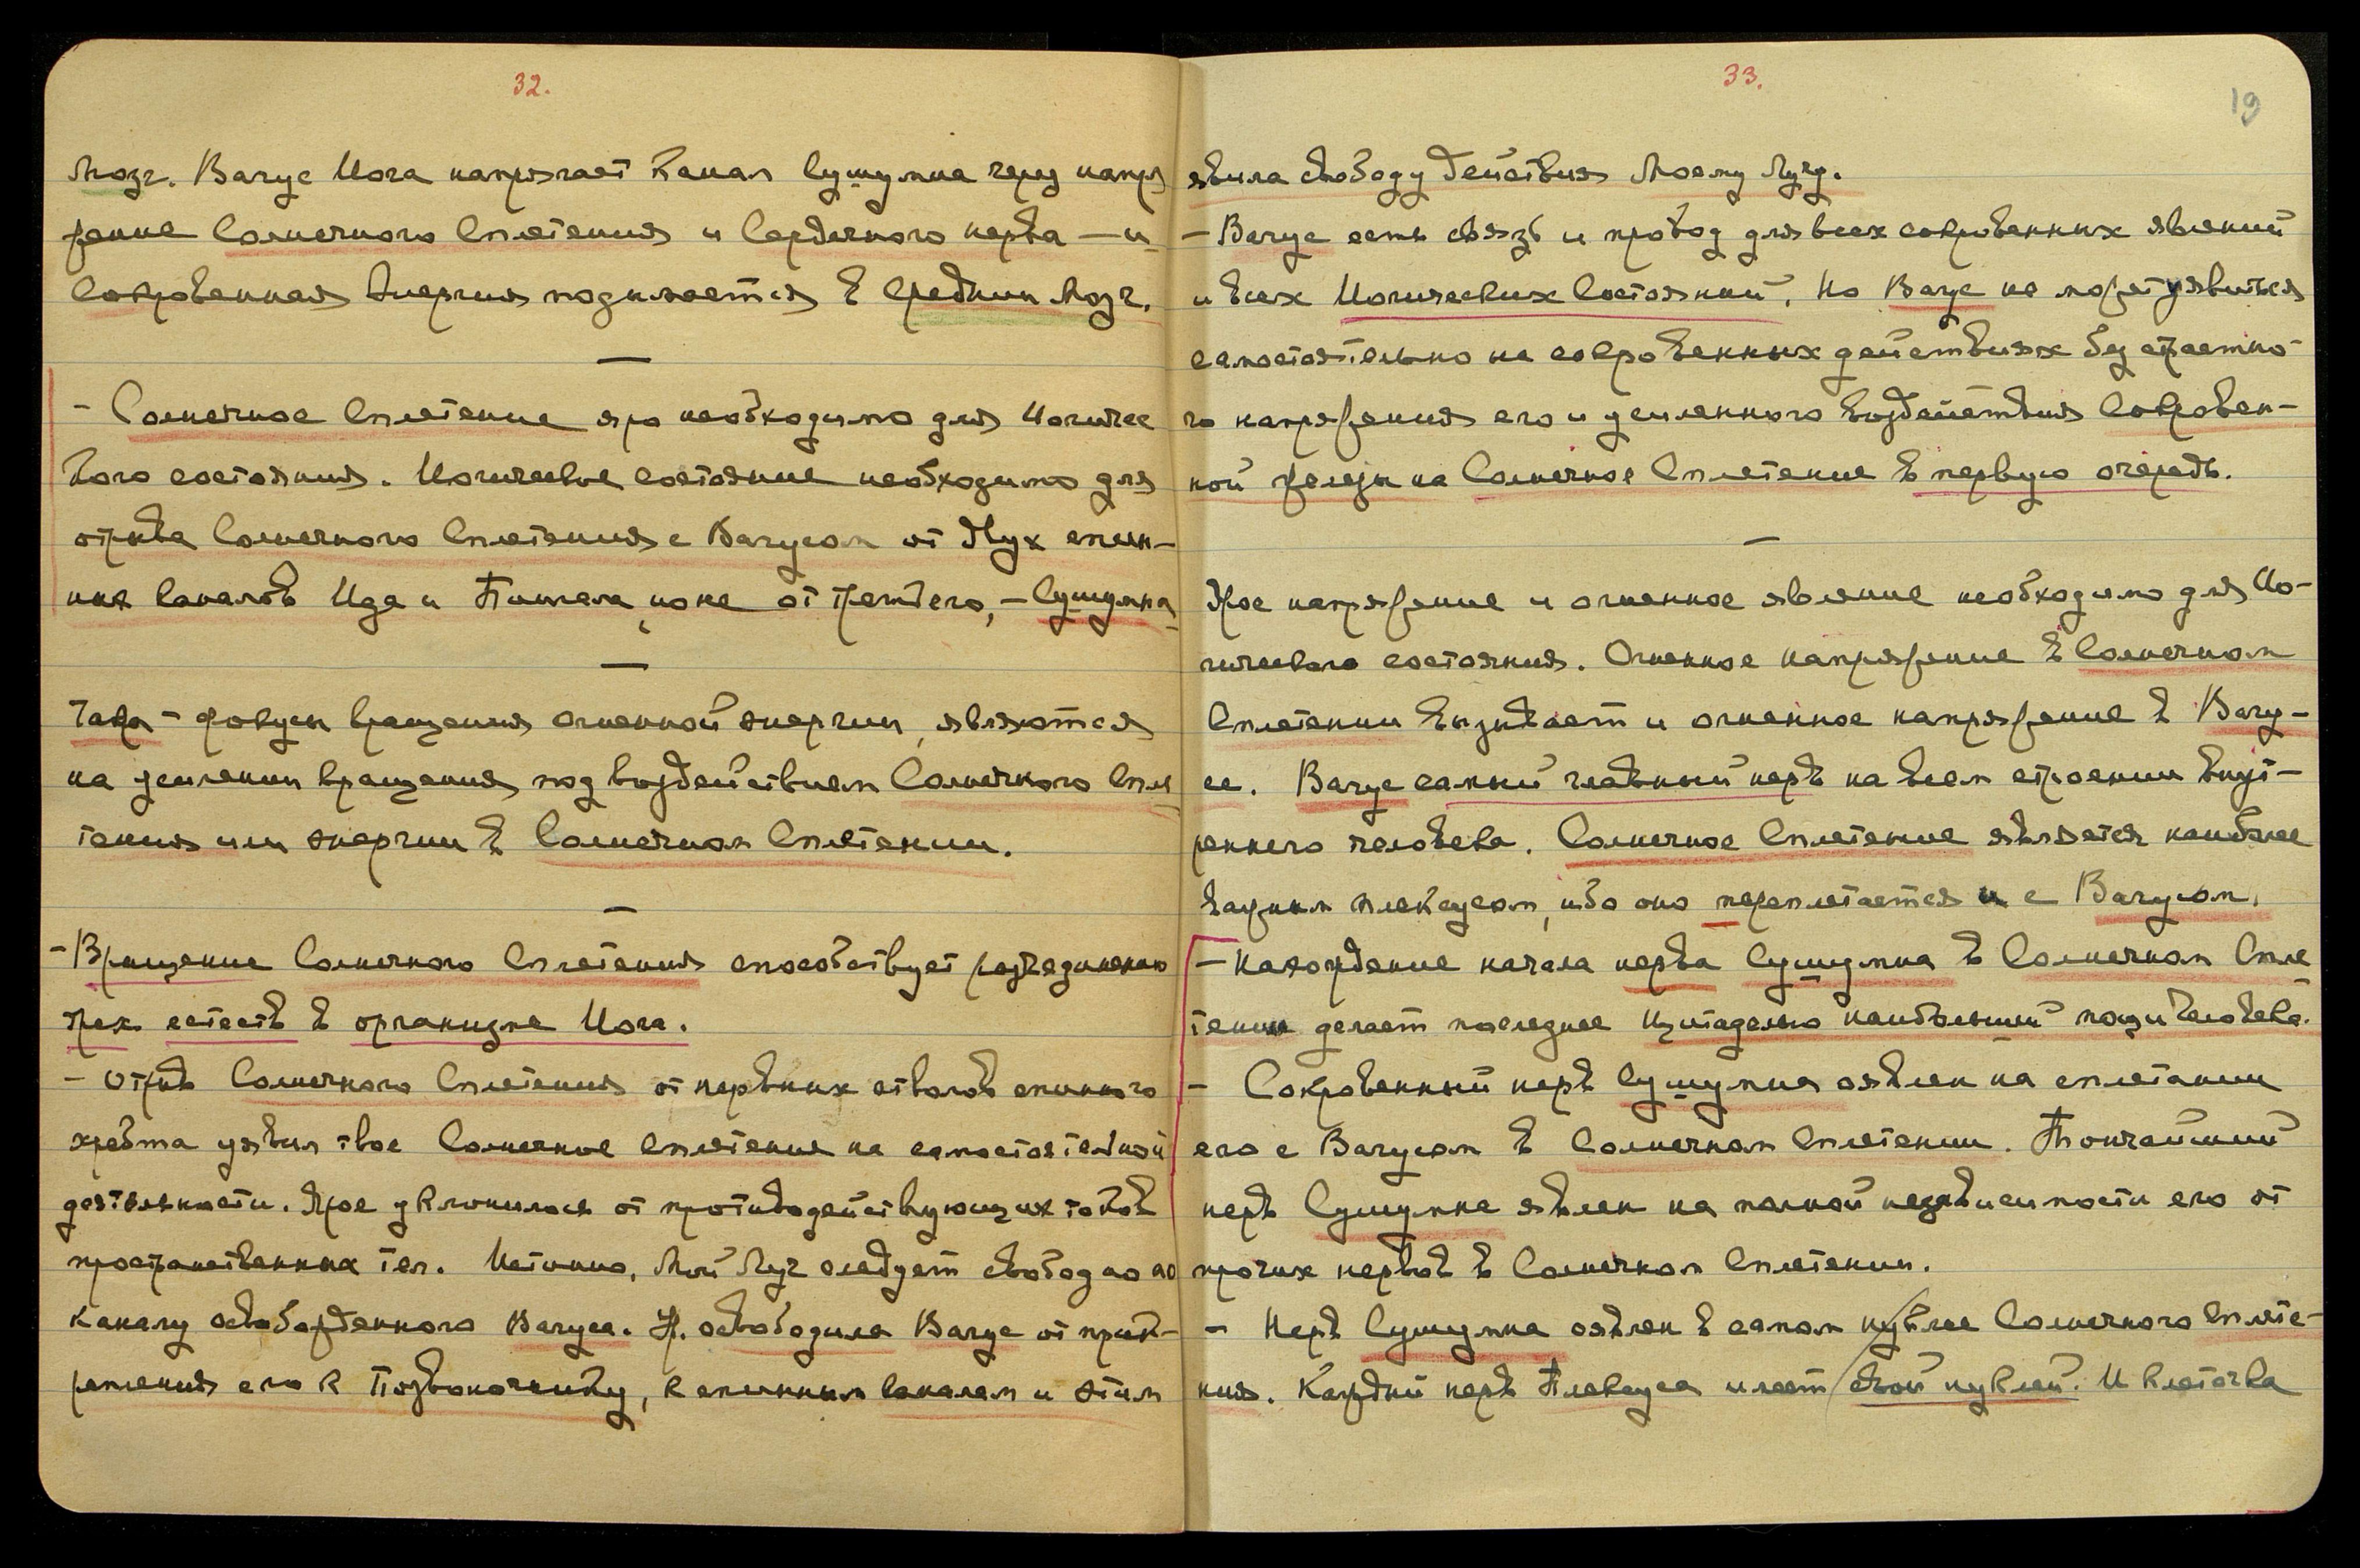 32.
Мозг. Вагус Йога напрягает Канал Сушумна через напря
жение Солнечного Сплетения и Сердечного нерва — и
Сокровенная Энергия подымается в Средний Мозг.
—
- Солнечное Сплетение яро необходимо для Йогичес
кого состояния. Йогическое состояние необходимо для
отрыва Солнечного Сплетения с Вагусом от Двух спин-
ных каналов Ида и Пингала, но не от третьего, - Сушумна
—
Чакры - фокусы вращения огненной энергии, являются
на усилении вращения под воздействием Солнечного Спле
тения или энергии в Солнечном Сплетении.
—
- Вращение Солнечного Сплетения способствует разъединению
трех естеств в организме Йога.
- Отрыв Солнечного Сплетения от нервных стволов спинного
хребта уявил твое Солнечное Сплетение на самостоятельной
деятельности. Ярое уклонилось от противодействующих токов
пространственных тел. Истинно, Мой Луч следует свободно по
каналу освобожденного Вагуса. У. освободила Вагус от прик-
репления его к Позвоночнику, к спинным каналам и этим
33.
19
явила свободу действия Моему Лучу.
- Вагус есть связь и провод для всех сокровенных явлений
и всех Йогических Состояний. Но Вагус не может уявиться
самостоятельно на сокровенных действиях без страстно-
го напряжения его и усиленного воздействия Сокровен-
ной железы на Солнечное Сплетение в первую очередь.
—
Ярое напряжение и огненное явление необходимо для Йо-
гического состояния. Огненное напряжение в Солнечном
Сплетении вызывает и огненное напряжение в Вагу-
се. Вагус самый главный нерв на всем строении внут-
реннего человека. Солнечное Сплетение является наиболее
важным плексусом, ибо оно переплетается и с Вагусом.
- Нахождение начала нерва Сушумна в Солнечном Спле
тении делает последнее цитаделью наибольшей мощи человека.
- Сокровенный нерв Сушумна оявлен на сплетении
его с Вагусом в Солнечном Сплетении. Тончайший
нерв Сушумна явлен на полной независимости его от
прочих нервов в Солнечном Сплетении.
- Нерв Сушумна оявлен в самом нуклее Солнечного Сплете-
ния. Каждый нерв Плексуса имеет свой нуклей. И клеточка